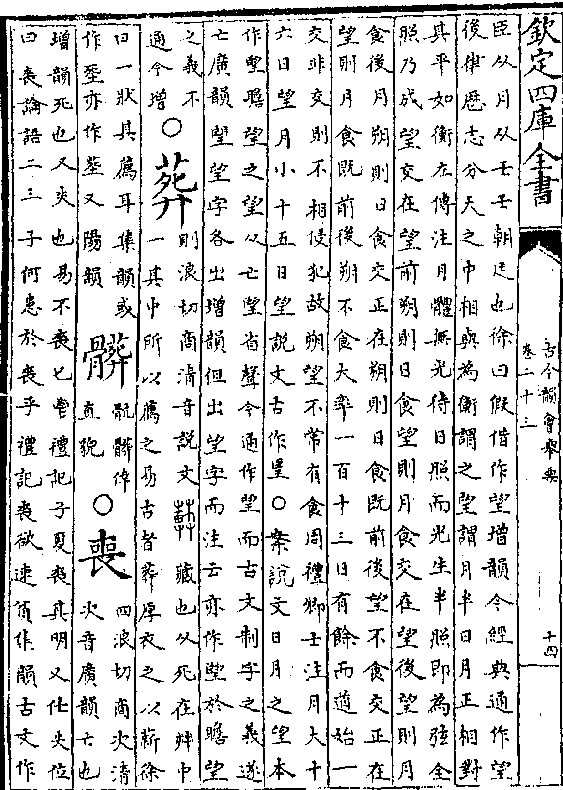 欽定四庫全書
古今韻會舉要
卷二十三
十四
臣从月从壬壬朝廷也徐曰假借作望增韻今經典通作望
後律歷志分天之中相與為衡謂之望謂月半日月正相對
其平如衡在傳注月體無光待日照而光生半照即為弦全
照乃成望交在望前朔則日食望則月食交在望後望則月
食後月朔則日食交正在朔則日食既前後望不食交正在
望則月食既前後朔不食大率一百十三日有餘而道始一
交非交則不相侵犯故朔望不常有食周禮鄉士注月大十
六日望月小十五日望說文古作○案說文日月之望本
作朢瞻望之望从亡朢省聲今通作望而古文制字之義遂
亡廣韻朢望字各出增韻但出望字而注云亦作朢於瞻望
之義不
通今增
○葬
則浪切商清音說文𦵏藏也从死在茻中
一其中所以薦之易古者葬厚衣之以薪徐
曰一狀其薦耳集韻或
作塟亦作又陽韻
髒
骯髒倖
直貌
○喪
四浪切商次清
次音廣韻亡也
增韻死也又失也易不喪匕鬯禮記子夏喪其明又仕失位
曰喪論語二三子何患於喪乎禮記喪欲速貧作韻古文作